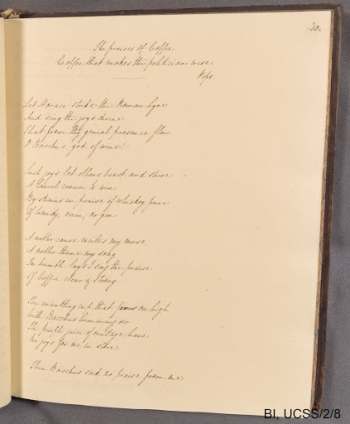 30.
The praises of Coffee.
Coffee that makes the politician wise.
Pope.
Let Horace strike the Roman Lyre
And sing the joys divine
That from thy genial presence flow
O Bacchus, god of wine!
Such joys let others boast, and strive
A laurel crown to win
By strains in praise of whiskey pure
Of brandy, rum, or gin
Another cause invites my muse,
Another theme my song
In humble lays I sing the praise
Of Coffee clear & strong
The mantling cup that foams on high
With Bacchus
The purple juice of vintage
No joys for me in store
Then Bacchus seek no praise from me
BI, UCSS/2/8